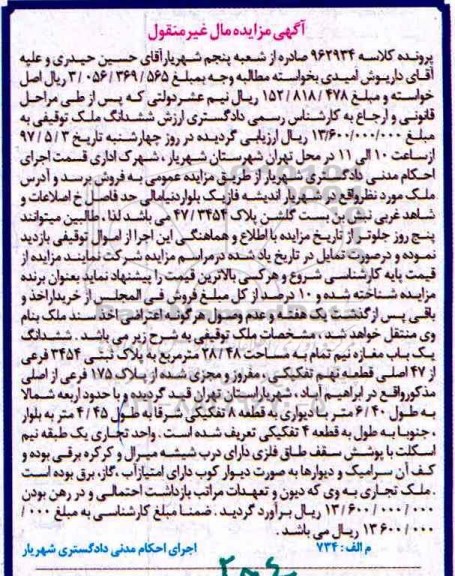 آگهی مزایده مال غیر منقول
پرونده کلاسه ۹۶۲۹۳۴ صادره از شعبه پنجم شهریار آقای حسین حیدری و علیه
آقای داریوش امیدی بخواسته مطالبه وجه بمبلغ ۵۶۵ /۳۶۹ /۰۵۶ /۳ ریال اصل
خواسته و مبلغ ۴۷۸ /۸۱۸ /۱۵۲ ریال نیم عشر دولتی که پس از طی مراحل
قانونی و ارجاع به کارشناس رسمی دادگستری ارزش ششدانگ ملک توقیفی به
مبلغ ۱۳/۶۰۰/۰۰۰/۰۰۰ ریال ارزیابی گردیده در روز چهارشنبه تاریخ ۳ /۵ /۹۷
از ساعت ۱۰ الی ۱۱ در محل تهران شهرستان شهریار ، شهرک اداری قسمت اجرای
احکام مدنی دادگستری شهریار از طریق مزایده عمومی به فروش برسد و آدرس
ملک مورد نظر واقع در شهریار اندیشه فاز یک بلوار دنیامالی حد فاصل خ اصلاعات و
شاهد غربی نبش بن بست گلشن پلاک ۳۴۵۴ /۴۷ می باشد لذا . طالبین میتوانند
پنج روز جلوتر از تاریخ مزایده با اطلاع و هماهنگی این اجرا از اموال توقیفی بازدید
نموده و درصورت تمایل در تاریخ یاد شده در مراسم مزایده شرکت نمایند مزایده از
قیمت پایه کارشناسی شروع و هر کسی بالاترین قیمت را پیشنهاد نماید بعنوان برنده
مزایده شناخته شده و ۱۰ درصد از کل مبلغ فروش فی المجلس از خریدار اخذ و
باقی پس از گذشت یک هفته و عدم وصول هر گونه اعتراضی اخذ سند ملک بنام
وی منتقل خواهد شد . مشخصات ملک توقیفی به شرح زیر می باشد . ششدانگ
یک باب مغازه نیم تمام به مساحت ۲۸/۴۸ متر مربع به پلاک ثبتی ۳۴۵۴ فرعی
از ۴۷ اصلی قطعه نهم تفکیکی ، مفروز و مجزی شده از پلاک ۱۷۵ فرعی از اصلی
مذکور واقع در ابراهیم آباد ، شهریار استان تهران قید گردیده و با حدود اربعه شمالا
به طول ۴۰ /۶ متر با دیواری به قطعه ۸ تفکیکی شرقا به طول ۴۵ /۴ متر به بلوار
، جنوبا به طول به قطعه ۴ تفکیکی تعریف شده است . واحد تجاری یک طبقه نیم
اسکلت با پوشش سقف طاق فلزی دارای درب شیشه میرال و کرکره برقی بوده و
کف آن سرامیک و دیوارها به صورت دیوار کوب دارای امتیاز آب ، گاز، برق بوده است
. ملک تجاری به وی که دیون و تعهدات مراتب بازداشت احتمالی و در رهن بودن
۰۰۰ /۰۰۰ /۶۰۰ /۱۳ ریال برآورد گردید . ضمنا مبلغ کارشناسی به مبلغ ۰۰۰/
۰۰۰ /۶۰۰ ۱۳ ریال می باشد .
م الف : ۷۳۴ اجرای احکام مدنی دادگستری شهریار